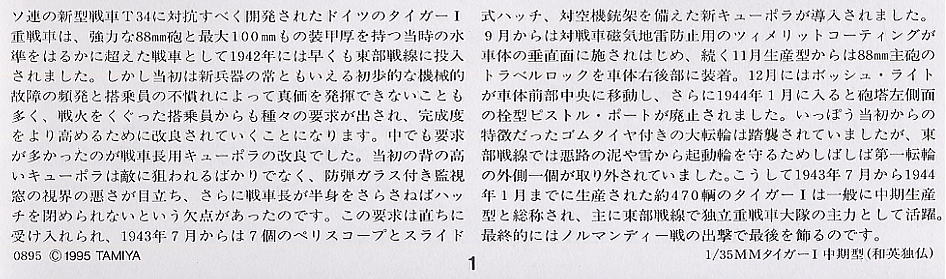 ソ連の新型戦車T34に対抗すべく開発されたドイツのタイガーI
重戦車は、強力な88mm砲と最大100mmもの装甲厚を持つ当時の水
準をはるかに超えた戦車として1942年には早くも東部戦線に投入
されました。しかし当初は新兵器の常ともいえる初歩的な機械的
故障の頻発と搭乗員の不慣れによって真価を発揮できないことも
多く、戦火をくぐった搭乗員からも種々の要求が出され、完成度
をより高めるために改良されていくことになります。中でも要求
が多かったのが戦車長用キューポラの改良でした。当初の背の高
いキューポラは敵に狙われるばかりでなく、防弾ガラス付き監視
窓の視界の悪さが目立ち、さらに戦車長が半身をさらさねばハッ
チを閉められないという欠点があったのです。この要求は直ちに
受け入れられ、1943年7月からは7個のペリスコープとスライド
式ハッチ、対空機銃架を備えた新キューポラが導入されました。
9月からは対戦車磁気地雷防止用のツィメリットコーティングが
車体の垂直面に施されはじめ、続く11月生産型からは88mm主砲の
トラベルロックを車体右後部に装着。12月にはボッシュ・ライト
が車体前部中央に移動し、さらに1944年1月に入ると砲塔左側面
の栓型ピストル・ポートが廃止されました。いっぽう当初からの
特徴だったゴムタイヤ付きの大転輪は踏襲されていましたが、東
部戦線では悪路の泥や雪から起動輪を守るためしばしば第一転輪
の外側一個が取り外されていました。こうして1943年7月から1944
年1月までに生産された約470輌のタイガーIは一般に中期生産
型と総称され、主に東部戦線で独立重戦車大隊の主力として活躍。
最終的にはノルマンディー戦の出撃で最後を飾るのです。
0895 ©1995 TAMIYA
1
1/35MMタイガーI中期型(和英独仏)